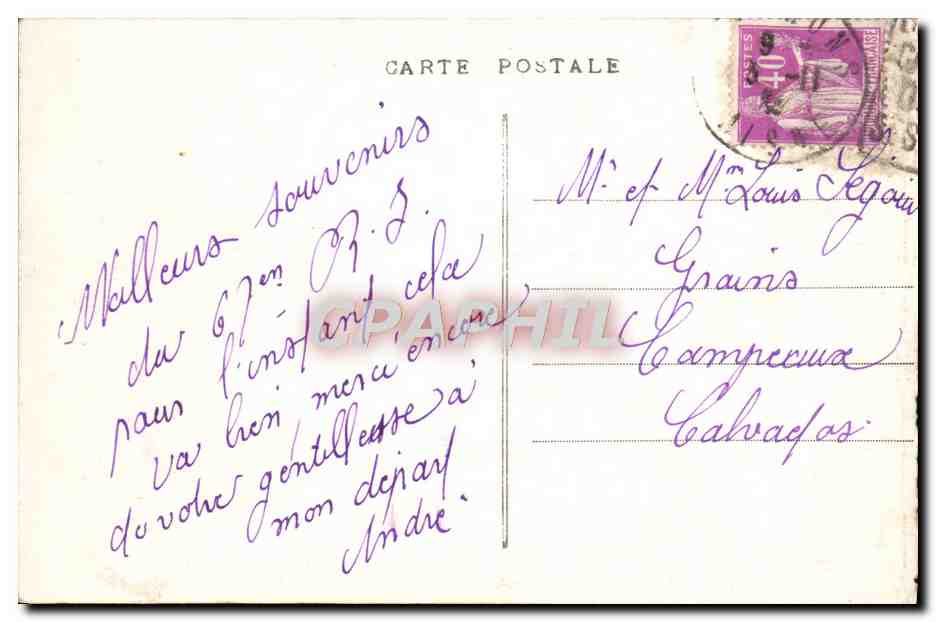 CARTE POSTALE
POSTES
40
FRANCAISE
Meilleurs souvenirs
du 67em R. I.
pour l'instant cela
va bien, merci encore
de votre gentillesse à
mon départ
André
Mr et Mm Louis Segouin
Grains
Campeaux
Calvados
CPAPHIL